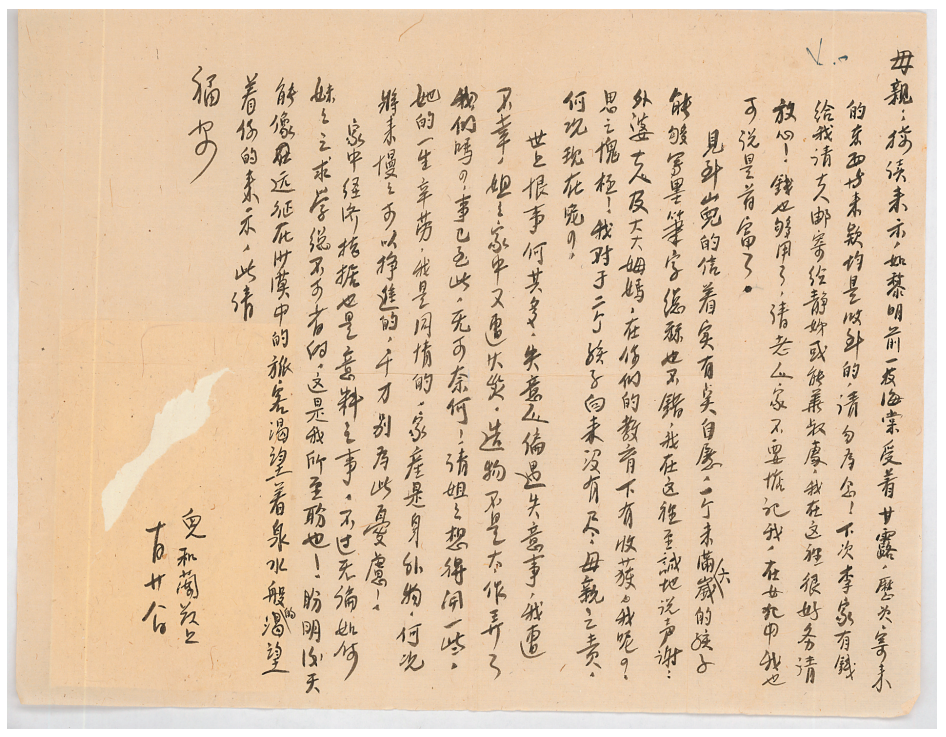 母親：接讀来示，如黎明前一枝海棠受着甘露，歷次寄来
的东西与来款均是收到的，请勿为念！下次李家有錢
给我请大人邮寄给静姊或能兼叔處，我在这裡很好务请
放心！錢也够用了，请老人家不要惦记我，在女九中我也
可说是首富了。
見到山兒的信着实有臭自屡，二个未滿六歲的孩子
能够写墨筆字總稱也不錯，我在这裡至誠地说声谢：
外婆大人及大大姆媽，在你们的教育下有收获，我呢？
思之愧極！我对于二个孩子向来没有尽母親之责，
何况现在呢？
世上恨事何其多，失意人偏遇失意事，我遭
不幸，姐之家中又遭火災，造物不是太作弄了
我们嗎？事已至此，无可奈何！请姐之想得開一些，
她的一生辛劳，我是同情的，家產是身外物，何况
將来慢之可以掙進的，千万别为此憂慮！
家中经济拮据也是意料之事，不过无論如何
妹之之求学總不可省的，这是我所至盼也！盼明後天
能像在远征在沙漠中的旅客渴望着泉水般的渴望
着你的来示，此请
福安
兒和蘭敬上
十月廿八日